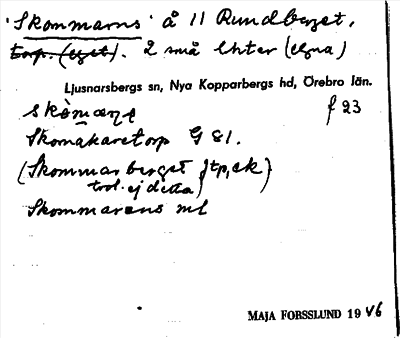 'Skommarns' å 11 Rundberget,
torp. (eget). 2 små lhter (egna)
Ljusnarsbergs sn, Nya Kopparbergs hd, Örebro län.
skòmaṇe f 23
Skomakaretorp G 81.
(Skommarberget Jtp, ek)
trol. ej detta
Skommarens ml
MAJA FORSSLUND 1946